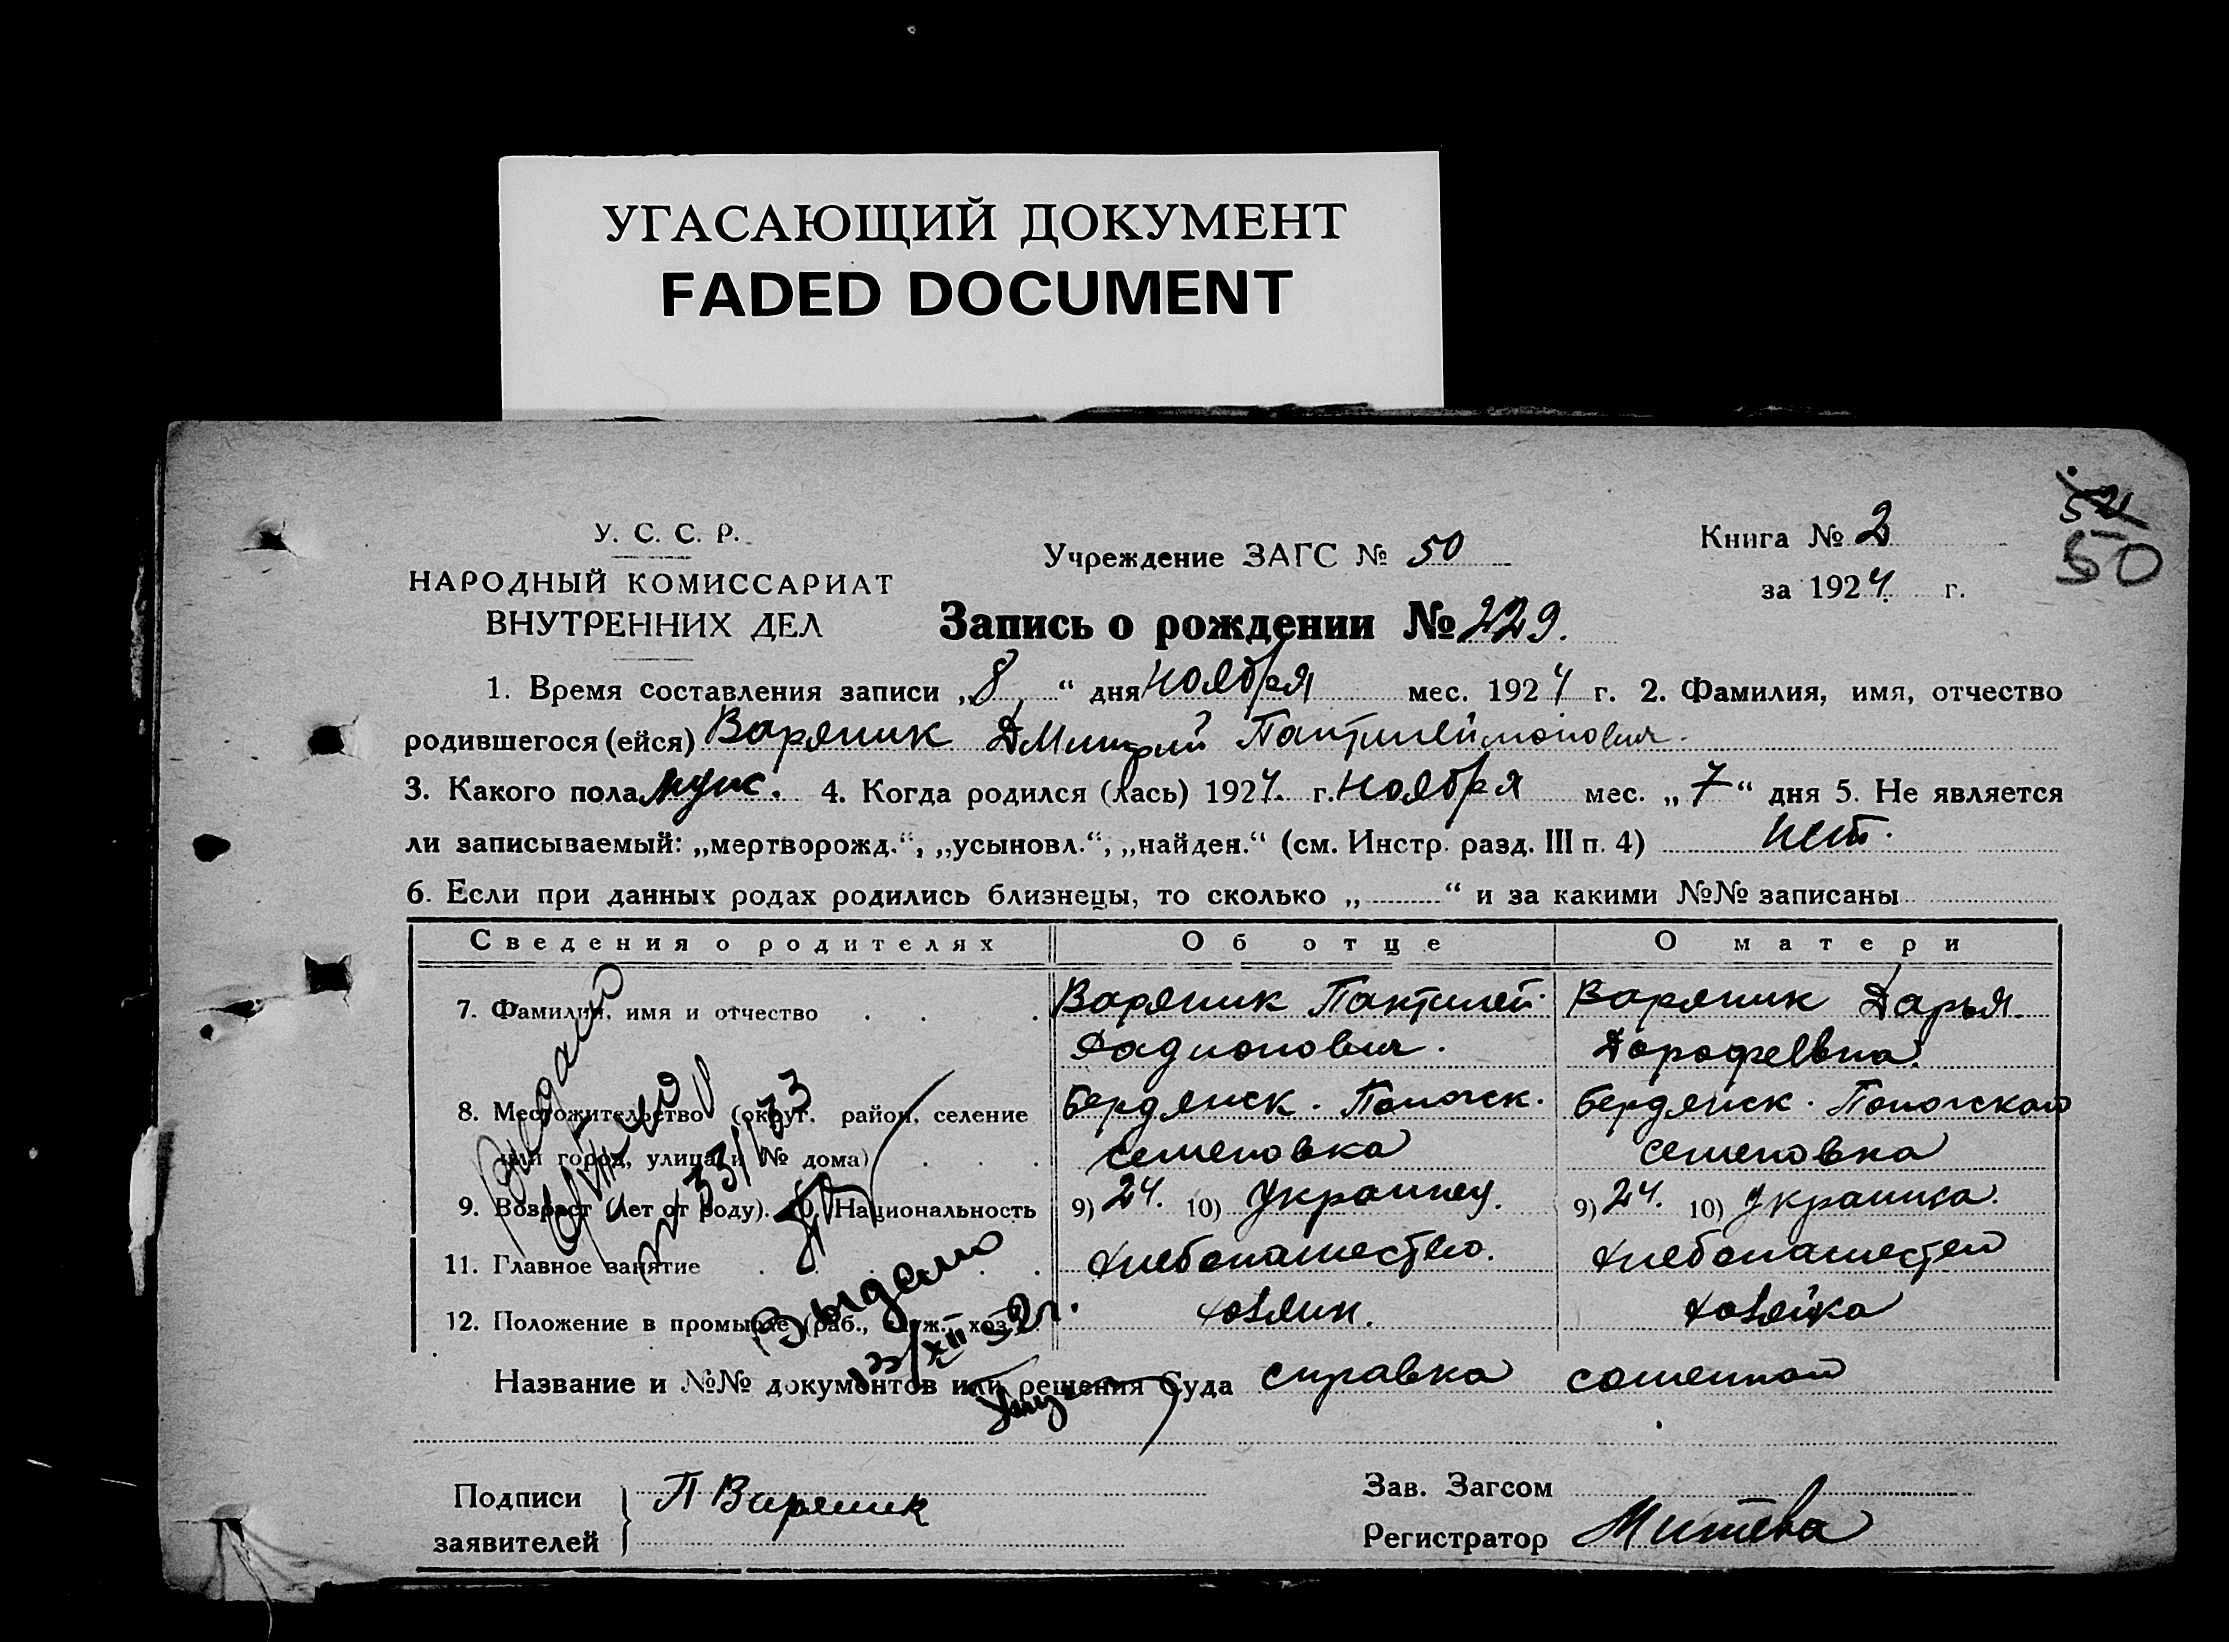 УГАСАЮЩИЙ ДОКУМЕНТ
FADED DOCUMENT
52
50
У. С. С. Р.
НАРОДНЫЙ КОМИССАРИАТ
ВНУТРЕННИХ ДЕЛ
Учреждение ЗАГС № 50
Книга № 2
за 1924 г.
Запись о рождении № 229.
1. Время составления записи „8“ дня ноября мес. 1924 г. 2. Фамилия, имя, отчество
родившегося (ейся) Варяник Дмитрий Пантилеймонович.
3. Какого пола муж. 4. Когда родился (лась) 1924. г. ноября мес. „7“ дня 5. Не является
ли записываемый: „мертворожд.“, „усыновл.“, „найден.“ (см. Инстр. разд. III п. 4) нет.
6. Если при данных родах родились близнецы, то сколько „ “ и за какими №№ записаны
Сведения о родителях Об отце О матери
7. Фамилия, имя и отчество Варяник Пантилей Варяник Дарья
Радионович. Дорофевна.
8. Местожительство (округ, район, селение Бердянск. Пологск. Бердянск. Пологского
или город, улица и № дома) Семеновка Семеновка
9. Возраст (лет от роду). 10. Национальность 9) 24. 10) Украинец. 9) 24. 10) Украинка.
11. Главное занятие Хлебопашество. Хлебопашество
12. Положение в промысле (раб., служ., хоз.) хозяин. хозяйка
Выдано
Выдано
23/XII 32 г.
Название и №№ документов или решения Суда справка
Подписи заявителей П Варяник
Зав. Загсом
Регистратор